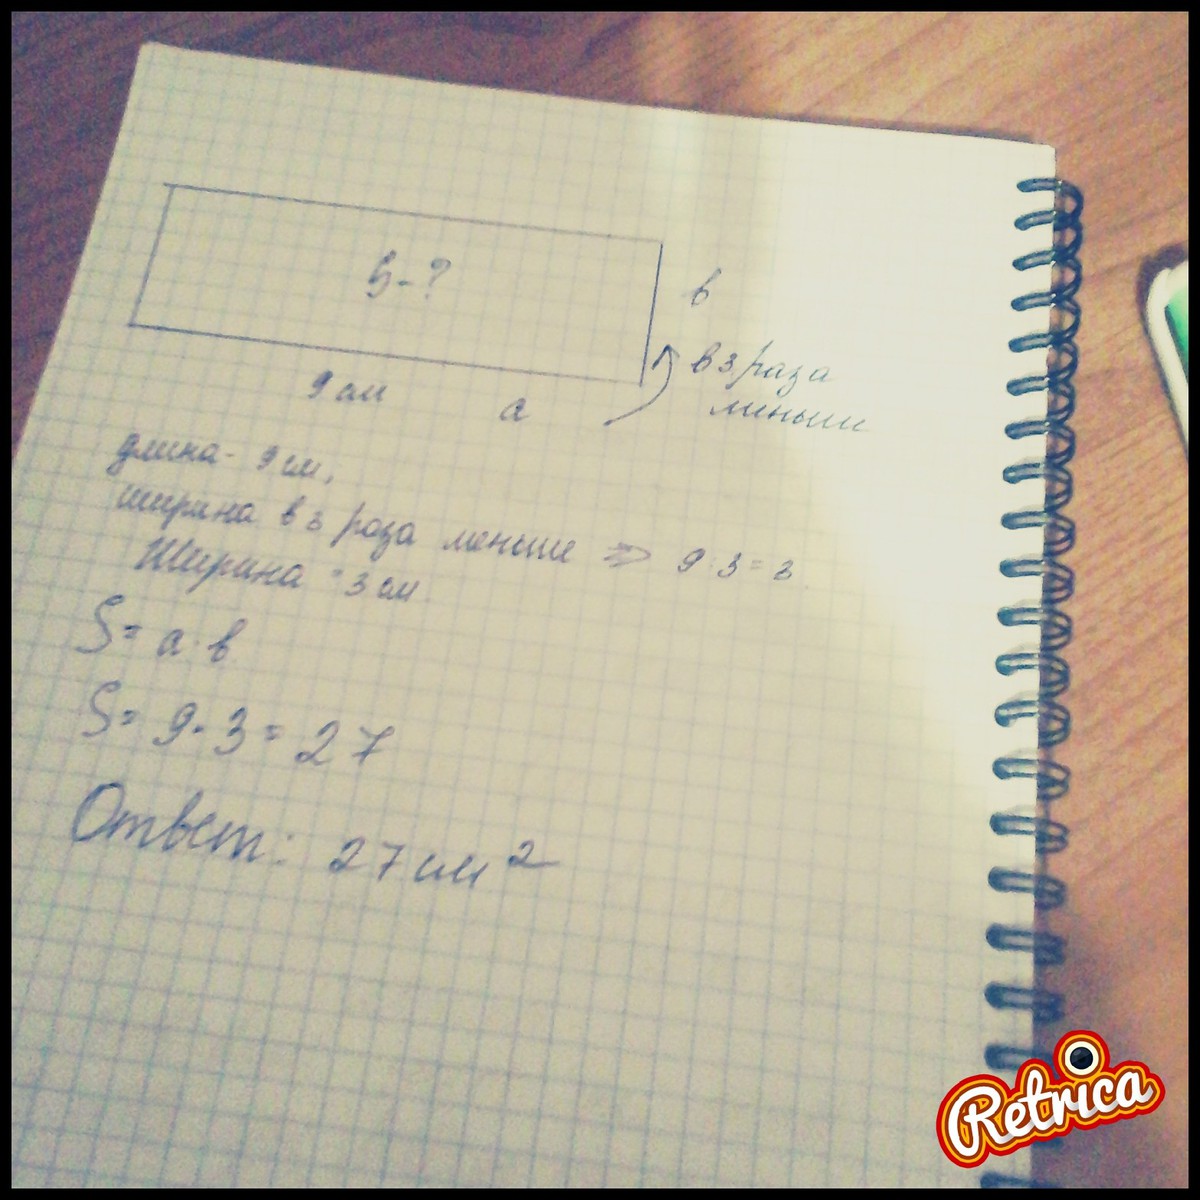 S-?
в
в 3 раза
меньше
9 см
a
длина - 9 см,
ширина в 3 раза меньше ⇒ 9:3=3.
Ширина - 3 см.
S= a·в
S= 9·3= 27
Ответ: 27 см²
Retrica